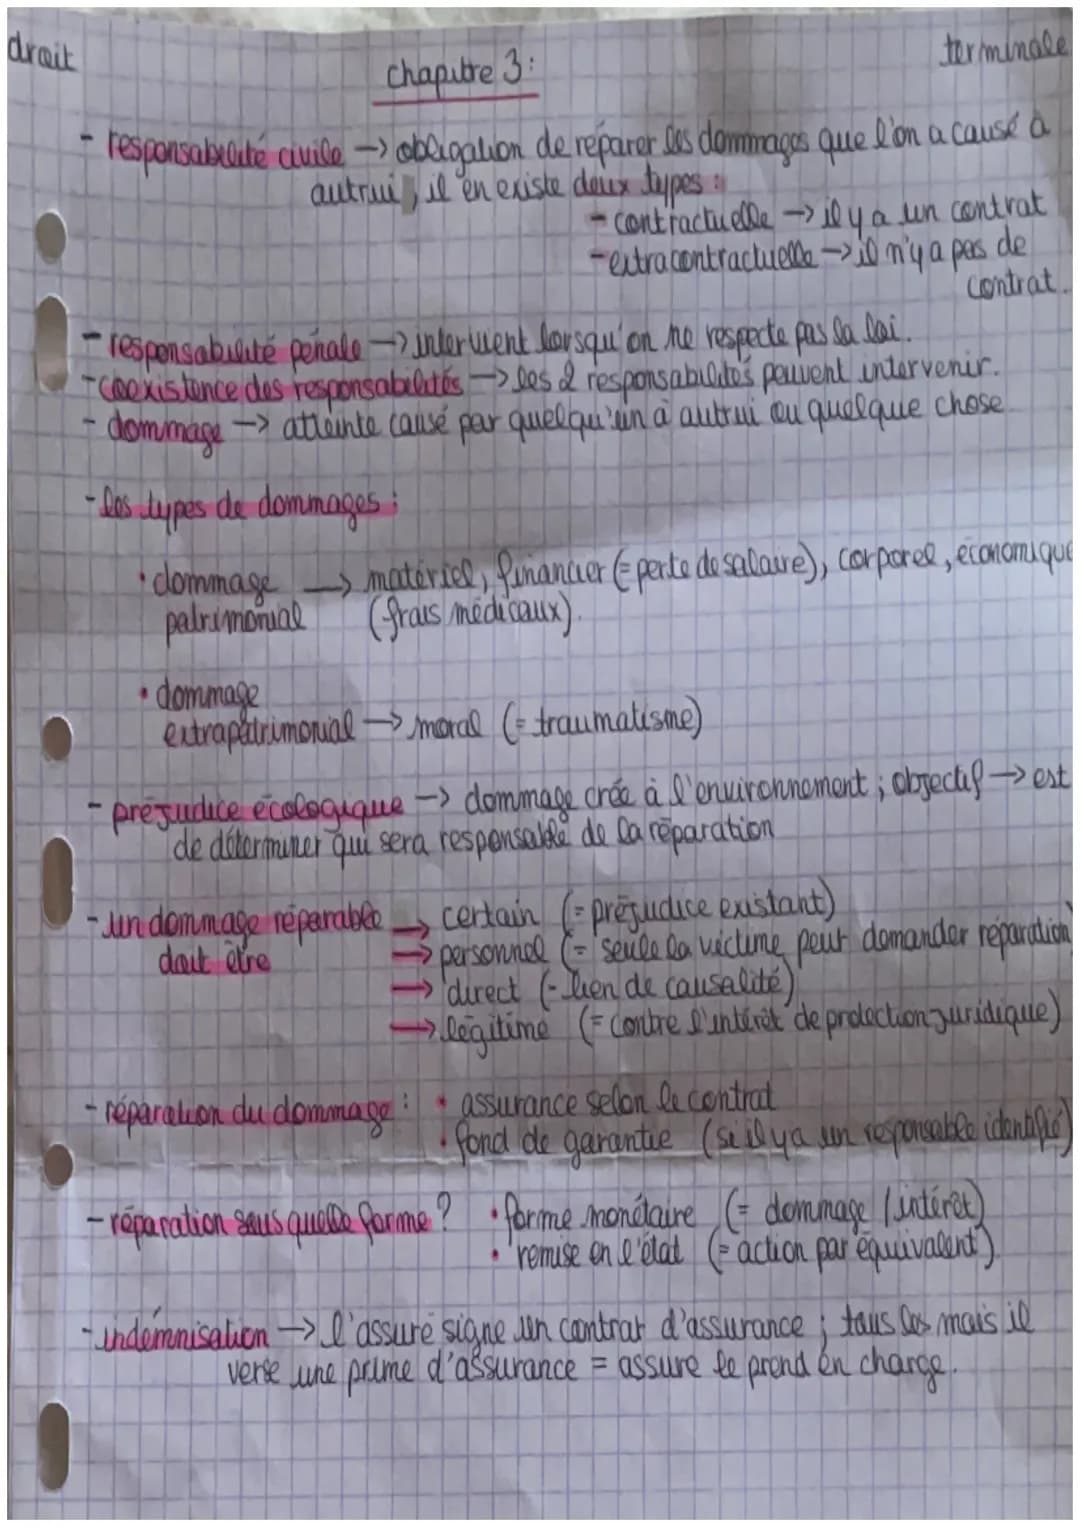 droit
terminale
chapitre 3:
- responsabilité civile -> obligation de réparer les dommages que l'on a causé à
autrui, il en existe deux types :
- contractuelle -> il y a un contrat
- extracontractuelle -> il n'y a pas de
contrat.
- responsabilité pénale -> intervient lorsqu'on ne respecte pas la loi.
- coexistence des responsabilités -> les 2 responsabilités peuvent intervenir.
- dommage -> atteinte causé par quelqu'un à autrui ou quelque chose
- les types de dommages :
• dommage -> matériel, financier (= perte de salaire), corporel, économique
patrimonial (frais médicaux).
• dommage
extrapatrimonial -> moral (= traumatisme)
- préjudice écologique -> dommage crée à l'environnement ; objectif -> est
de déterminer qui sera responsable de la réparation
- un dommage réparable -> certain (= préjudice existant)
doit être -> personnel (= seule la victime peut demander réparation)
-> direct (- lien de causalité)
-> légitime (= contre l'intérêt de protection juridique)
- réparation du dommage : • assurance selon le contrat
• fond de garantie (si il y a un responsable identifié)
- réparation sous quelle forme ? • forme monétaire (= dommage / intérêt)
• remise en l'état (= action par équivalent).
- indémnisation -> l'assuré signe un contrat d'assurance ; tous les mois il
verse une prime d'assurance = assure le prend en charge.